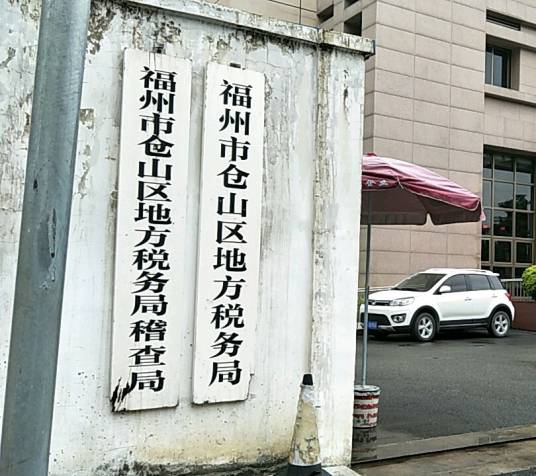 福州市仓山区地方税务局稽查局
福州市仓山区地方税务局